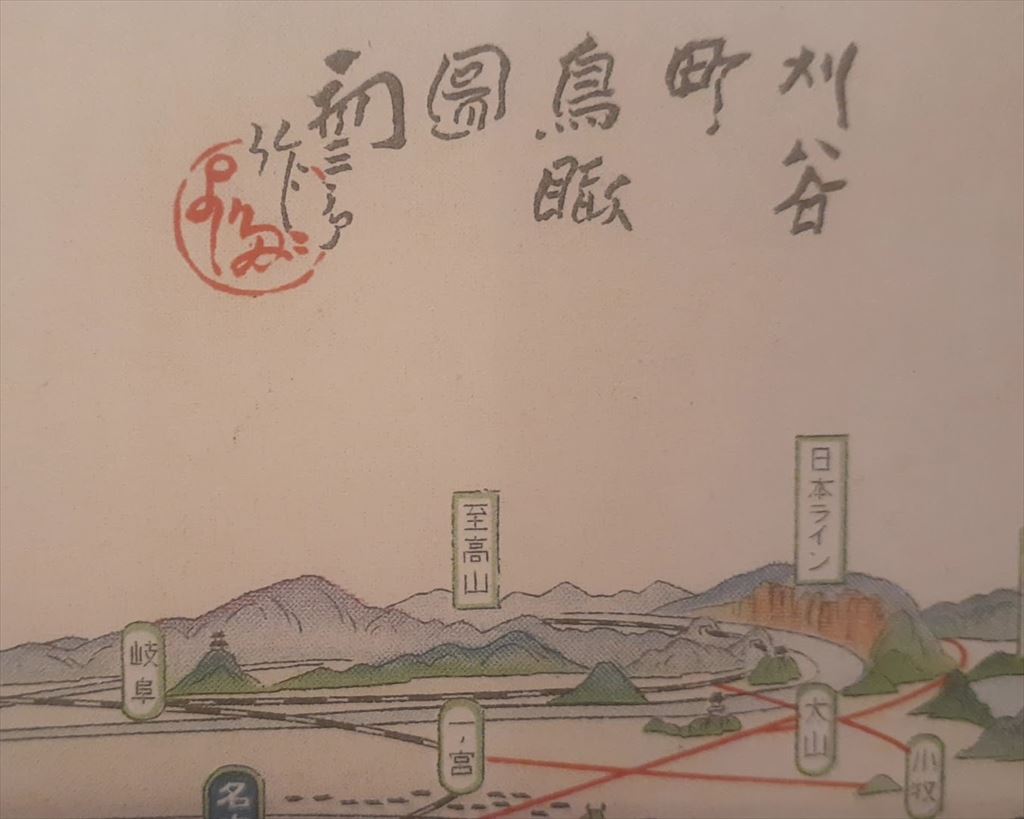 刈谷
町
鳥瞰
圖
初三郎
作
日本ライン
至高山
岐阜
一ノ宮
犬山
小牧
名